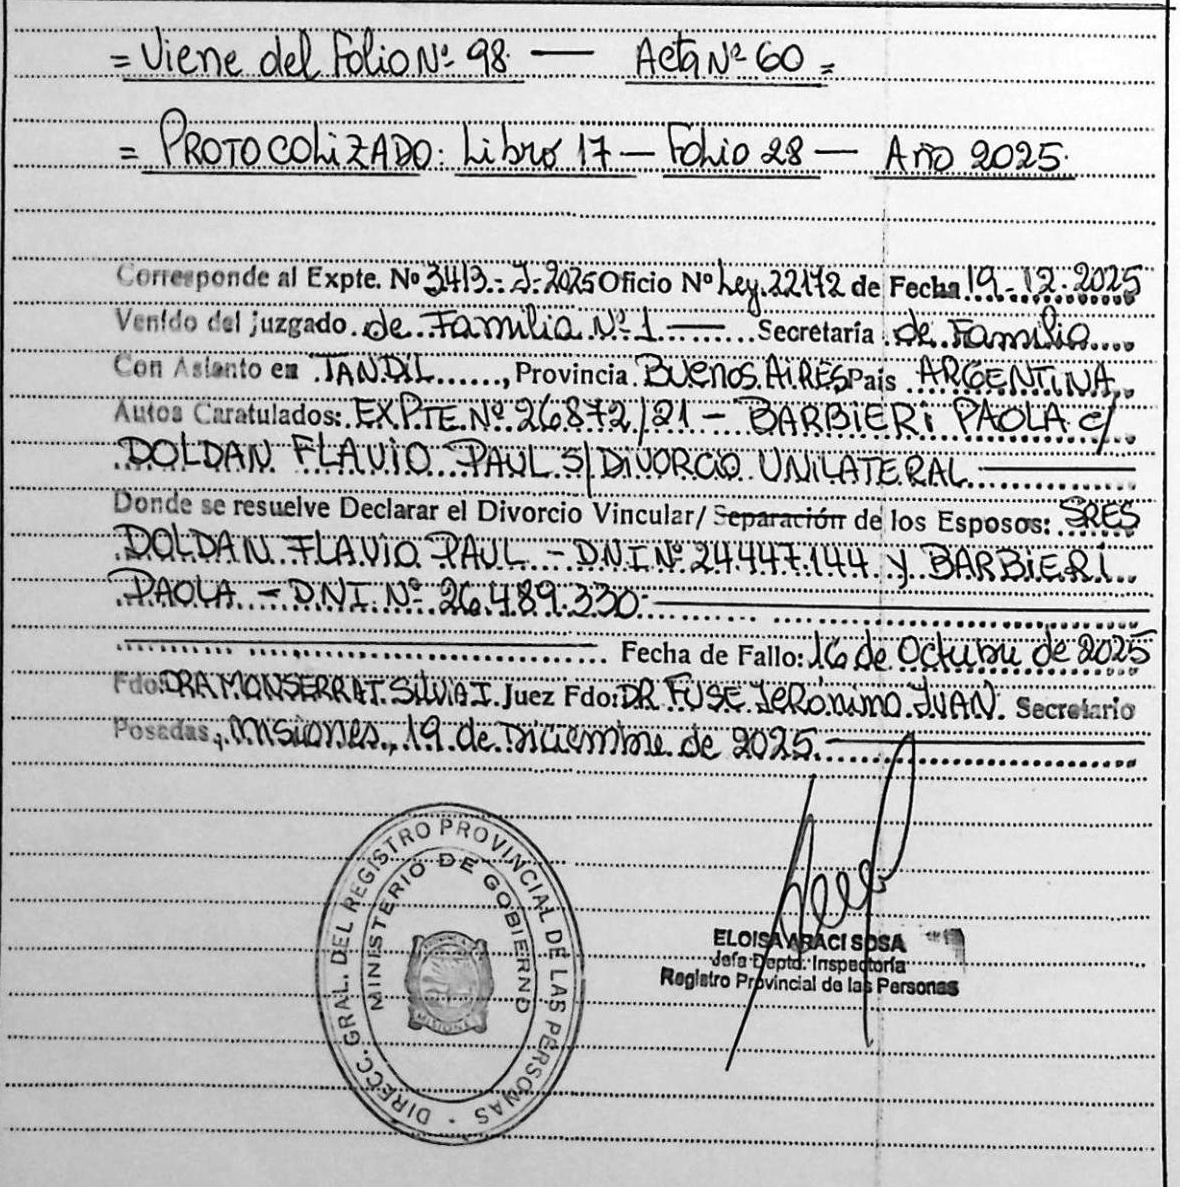 = Viene del Folio Nº 98 — Acta Nº 60 =
= PROTOCOLIZADO: Libro 17 — Folio 28 — Año 2025.
Corresponde al Expte. Nº 3413.-J-2025 Oficio Nº Ley.22172 de Fecha 19.-12-2025
Venido del juzgado de Familia Nº 1 — Secretaría de Familia
Con Asiento en TANDIL, Provincia Buenos Aires País ARGENTINA
Autos Caratulados: EXPTE Nº 26872/21 - BARBIERI PAOLA c/
DOLDAN FLAVIO PAUL S/ DIVORCIO UNILATERAL
Donde se resuelve Declarar el Divorcio Vincular/ Separación de los Esposos: SRES
DOLDAN FLAVIO PAUL - D.N.I. Nº 24.447.144 y BARBIERI
PAOLA - D.N.I. Nº 26.489.330-
Fecha de Fallo: 16 de Octubre de 2025
Fdo: DRA MONSERRAT SILVIA I. Juez Fdo: DR FUSE JERÓNIMO JUAN. Secretario
Posadas, Misiones, 19 de Diciembre de 2025.
DIRECC. GRAL. DEL REGISTRO PROVINCIAL DE LAS PERSONAS
MINISTERIO DE GOBIERNO
MISIONES
ELOISA ARACI SOSA
Jefa Depto. Inspectoría
Registro Provincial de las Personas